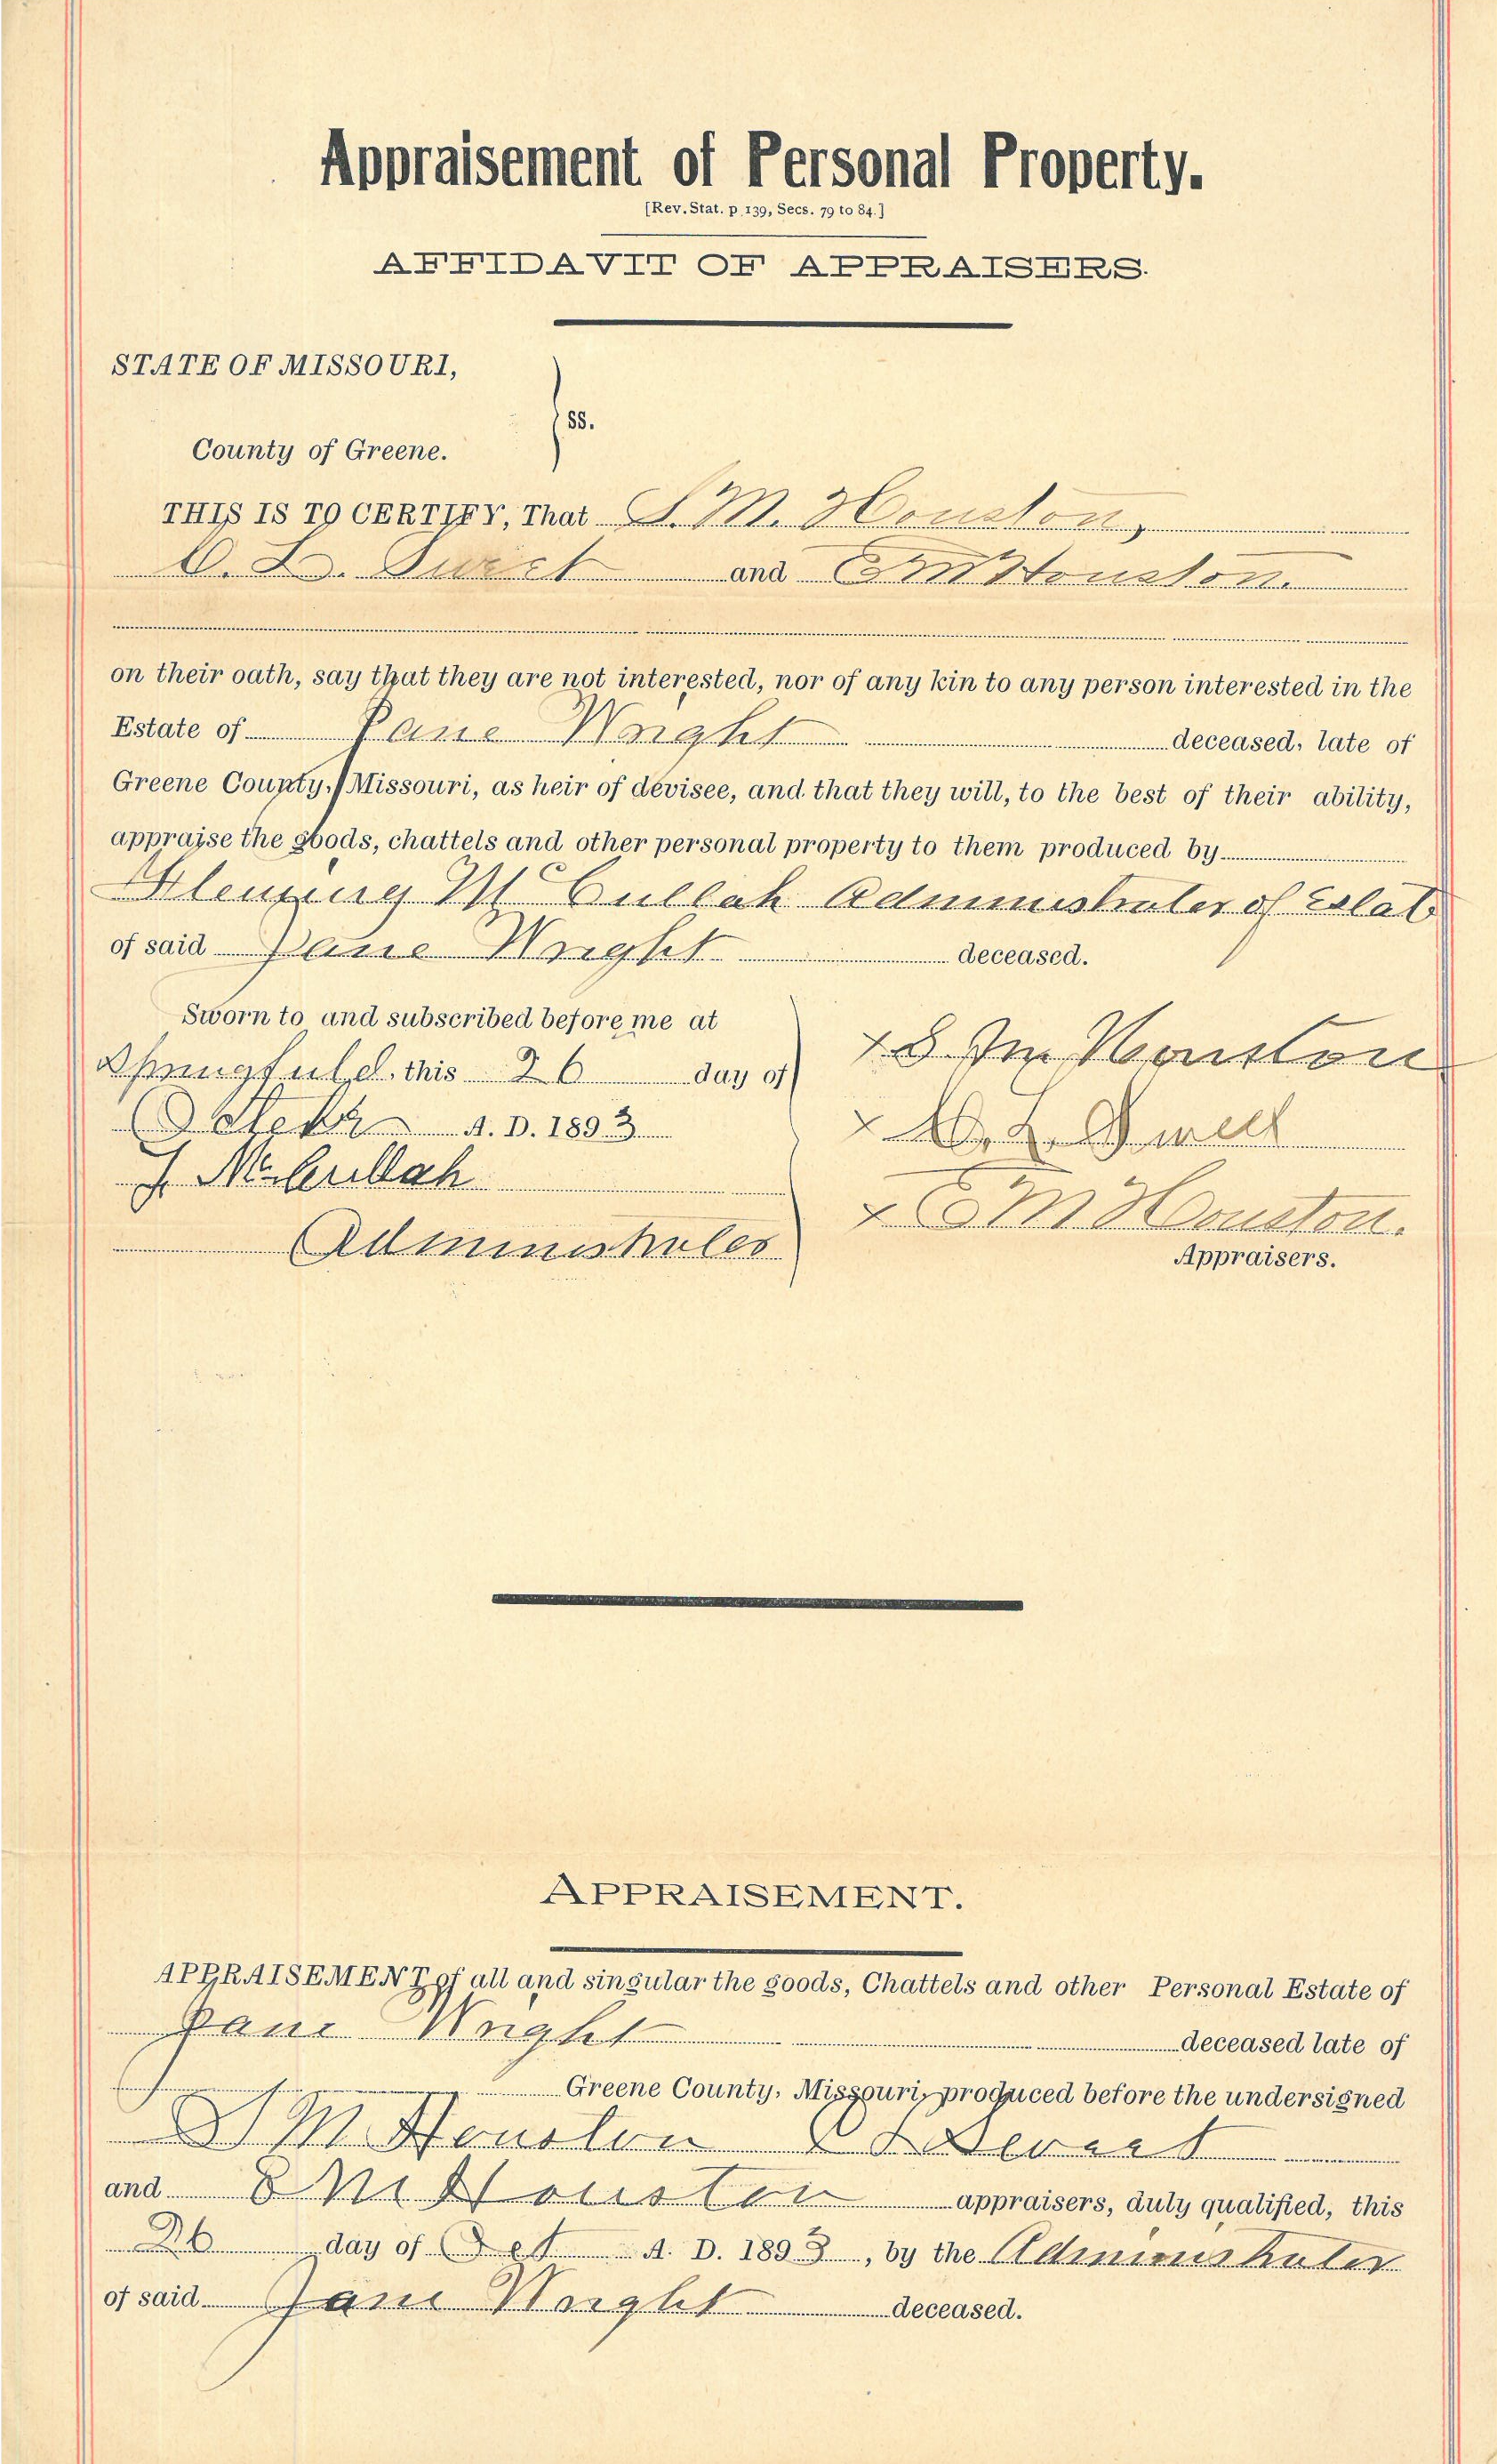 Appraisement of Personal Property.
[Rev. Stat. p 139, Secs. 79 to 84.]
AFFIDAVIT OF APPRAISERS.
STATE OF MISSOURI,
ss.
County of Greene.
THIS IS TO CERTIFY, That S. M. Houston,
and E M Houston.
on their oath, say that they are not interested, nor of any kin to any person interested in the
Estate of Jane Wright deceased, late of
Greene County, Missouri, as heir of devisee, and that they will, to the best of their ability,
appraise the goods, chattels and other personal property to them produced by
McCullah Administrator of Estate
of said Jane Wright deceased.
Sworn to and subscribed before me at
Springfield, this 26 day of
October A. D. 1893
McCullah
Administrator
x S M Houston
x
x E M Houston.
Appraisers.
APPRAISEMENT.
APPRAISEMENT of all and singular the goods, Chattels and other Personal Estate of
Jane Wright deceased late of
Greene County, Missouri, produced before the undersigned
S M Houston
and E M Houston appraisers, duly qualified, this
26 day of Oct A. D. 1893, by the Administrator
of said Jane Wright deceased.